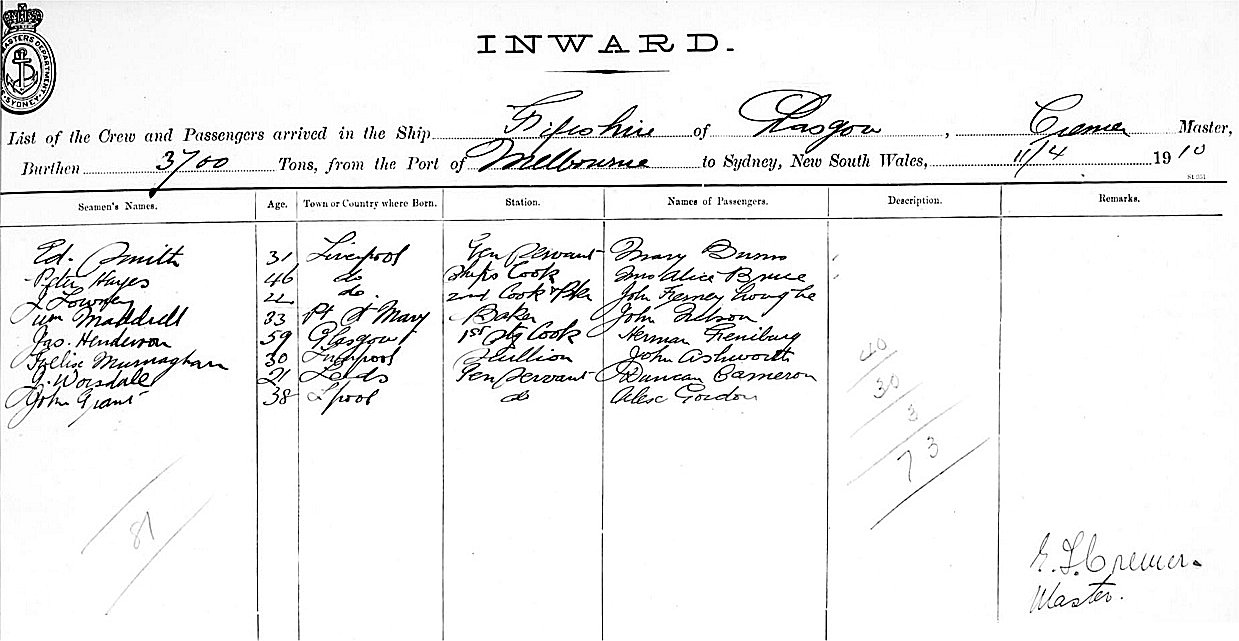 MASTERS DEPARTMENT
SYDNEY
INWARD.
List of the Crew and Passengers arrived in the Ship Fifeshire of Glasgow, Cremer Master,
Burthen 3700 Tons, from the Port of Melbourne to Sydney, New South Wales, 11/4 1910
Seamen's Names. Age. Town or Country where Born. Station. Names of Passengers. Description. Remarks.
Ed. Smith 31 Liverpool Gen Servant Mary Burns
Peter Hayes 46 do Ships Cook Mrs Alice Bruce
J Lowney do 2nd Cook & John
Wm Maddrell 33 Pt St Mary Baker John Nelson
Jas. Henderson 59 Glasgow 1st Cook Herman
Murnaghan 30 Liverpool Scullion John Ashworth
J. Worsdale 21 Leeds Gen Servant Duncan Cameron
John Grant 38 L'pool do Alex Gordon
40
30
3
73
81
E. T. Cremer.
Master.